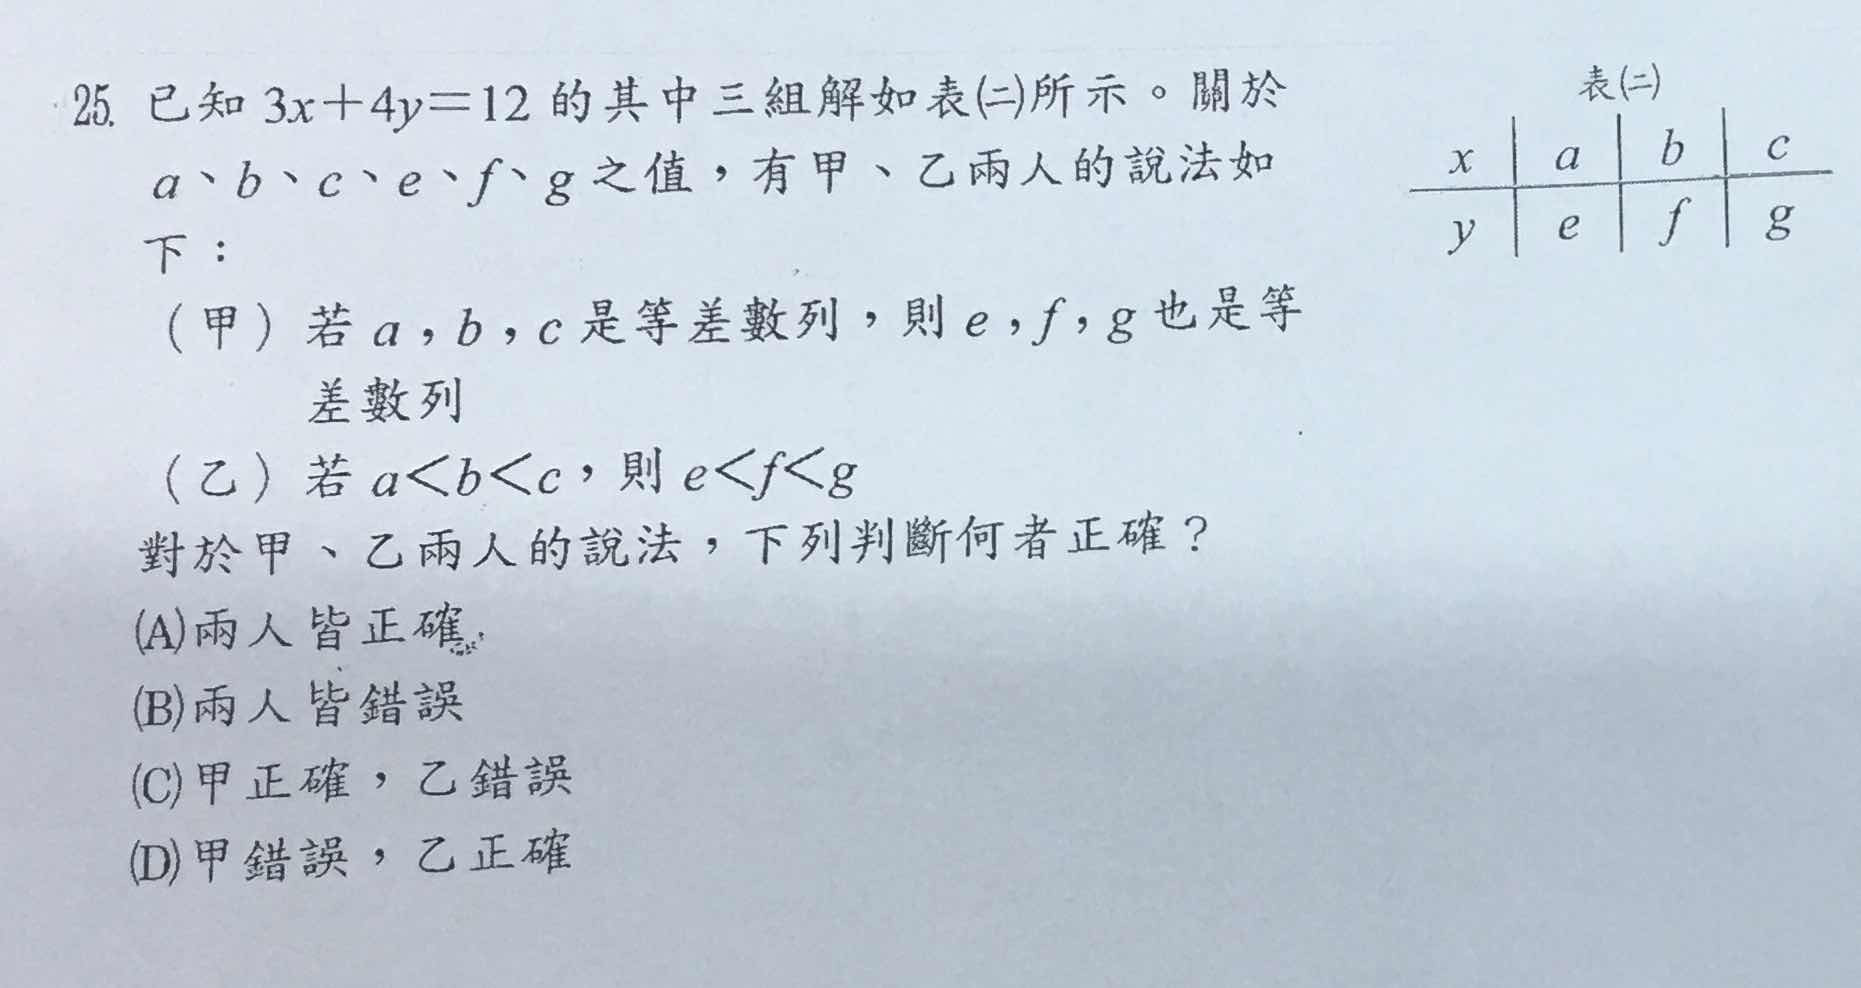 25. 已知 3x+4y=12 的其中三組解如表㈡所示。關於
a、b、c、e、f、g 之值，有甲、乙兩人的說法如
下：
（甲）若 a，b，c 是等差數列，則 e，f，g 也是等
差數列
（乙）若 a<b<c，則 e<f<g
對於甲、乙兩人的說法，下列判斷何者正確？
(A)兩人皆正確
(B)兩人皆錯誤
(C)甲正確，乙錯誤
(D)甲錯誤，乙正確
表㈡
x a b c
y e f g